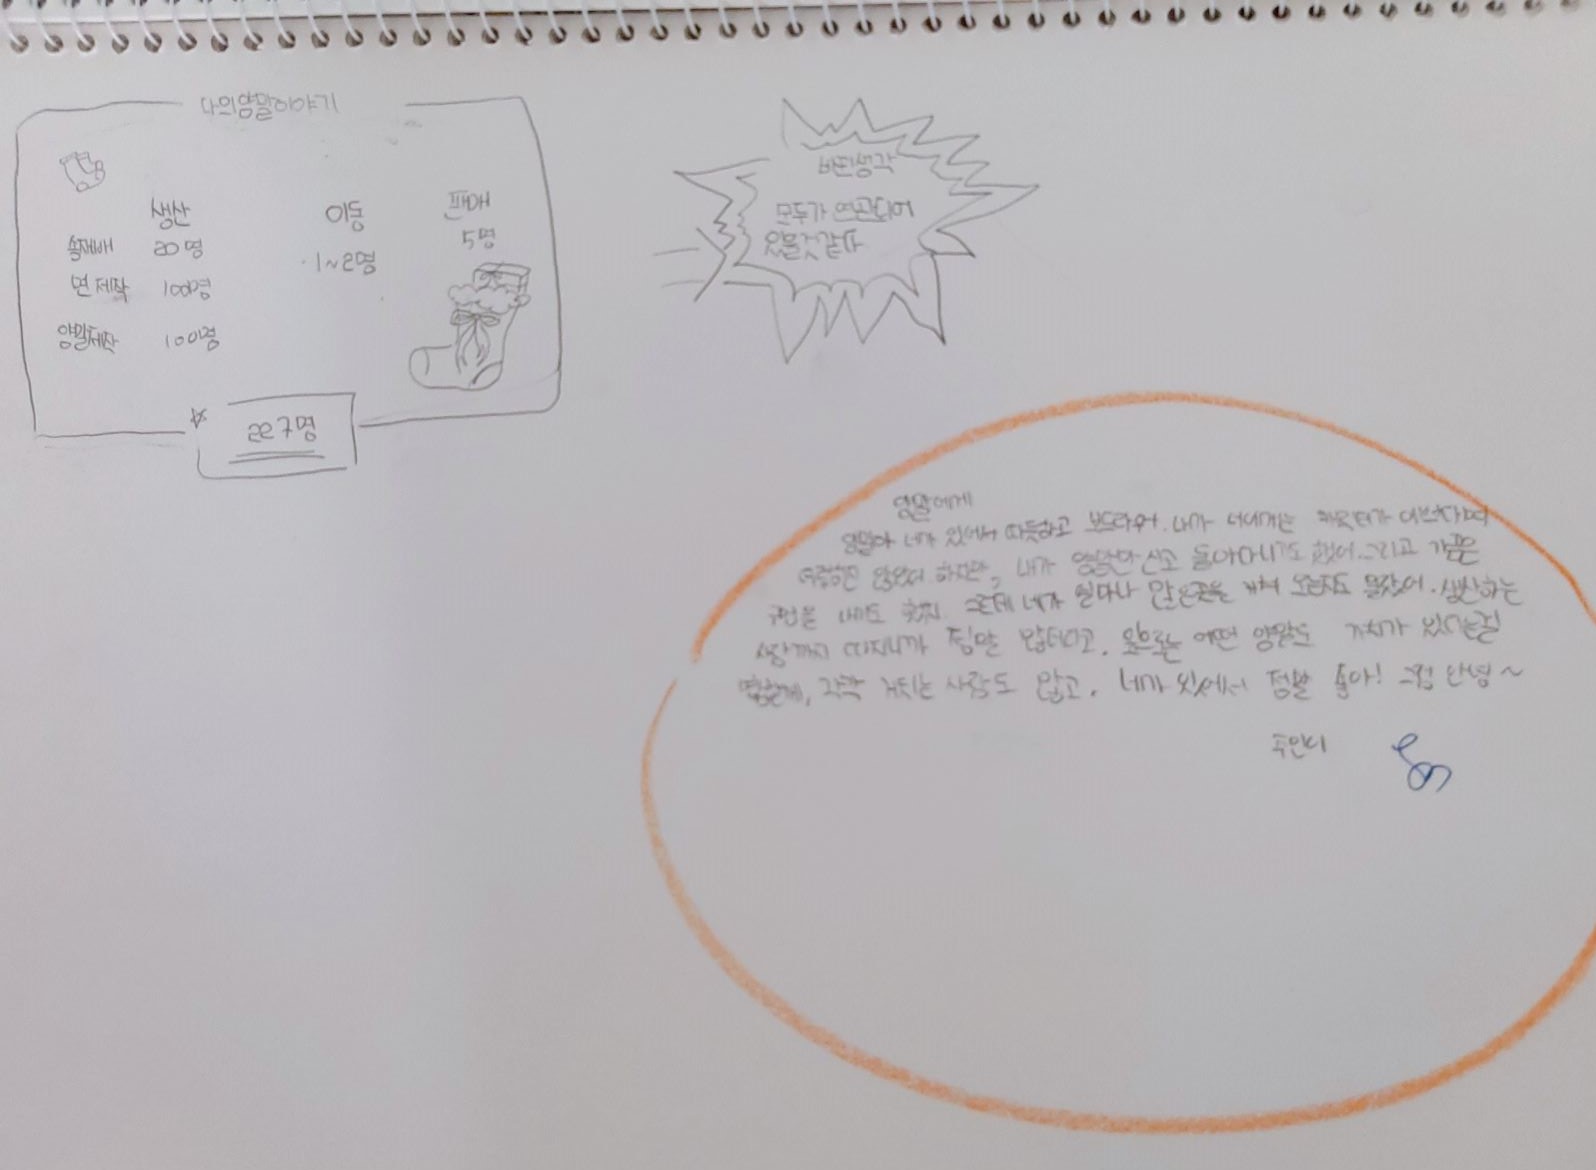 나의양말이야기
생산 이동 판매
솜재배 20명 1~2명 5명
면 제작 100명
양말제작 100명
227명
바뀐생각
모두가 연관되어
있을것같다
양말에게
양말아 네가 있어서 따뜻하고 보드라워. 내가 너에게는
않았어 하지만, 내가 양말만 신고 돌아다니기도 했어. 그리고 가끔은
구멍을 내기도 했지. 그런데 네가 얼마나 많은곳을 거쳐 오는지도 몰랐어. 생산하는
사람까지 따지니까 정말 많더라고. 앞으로는 어떤 양말도 가치가 있다는걸
각각 거치는 사람도 많고. 네가 있어서 정말 좋아! 그럼 안녕~
주인이